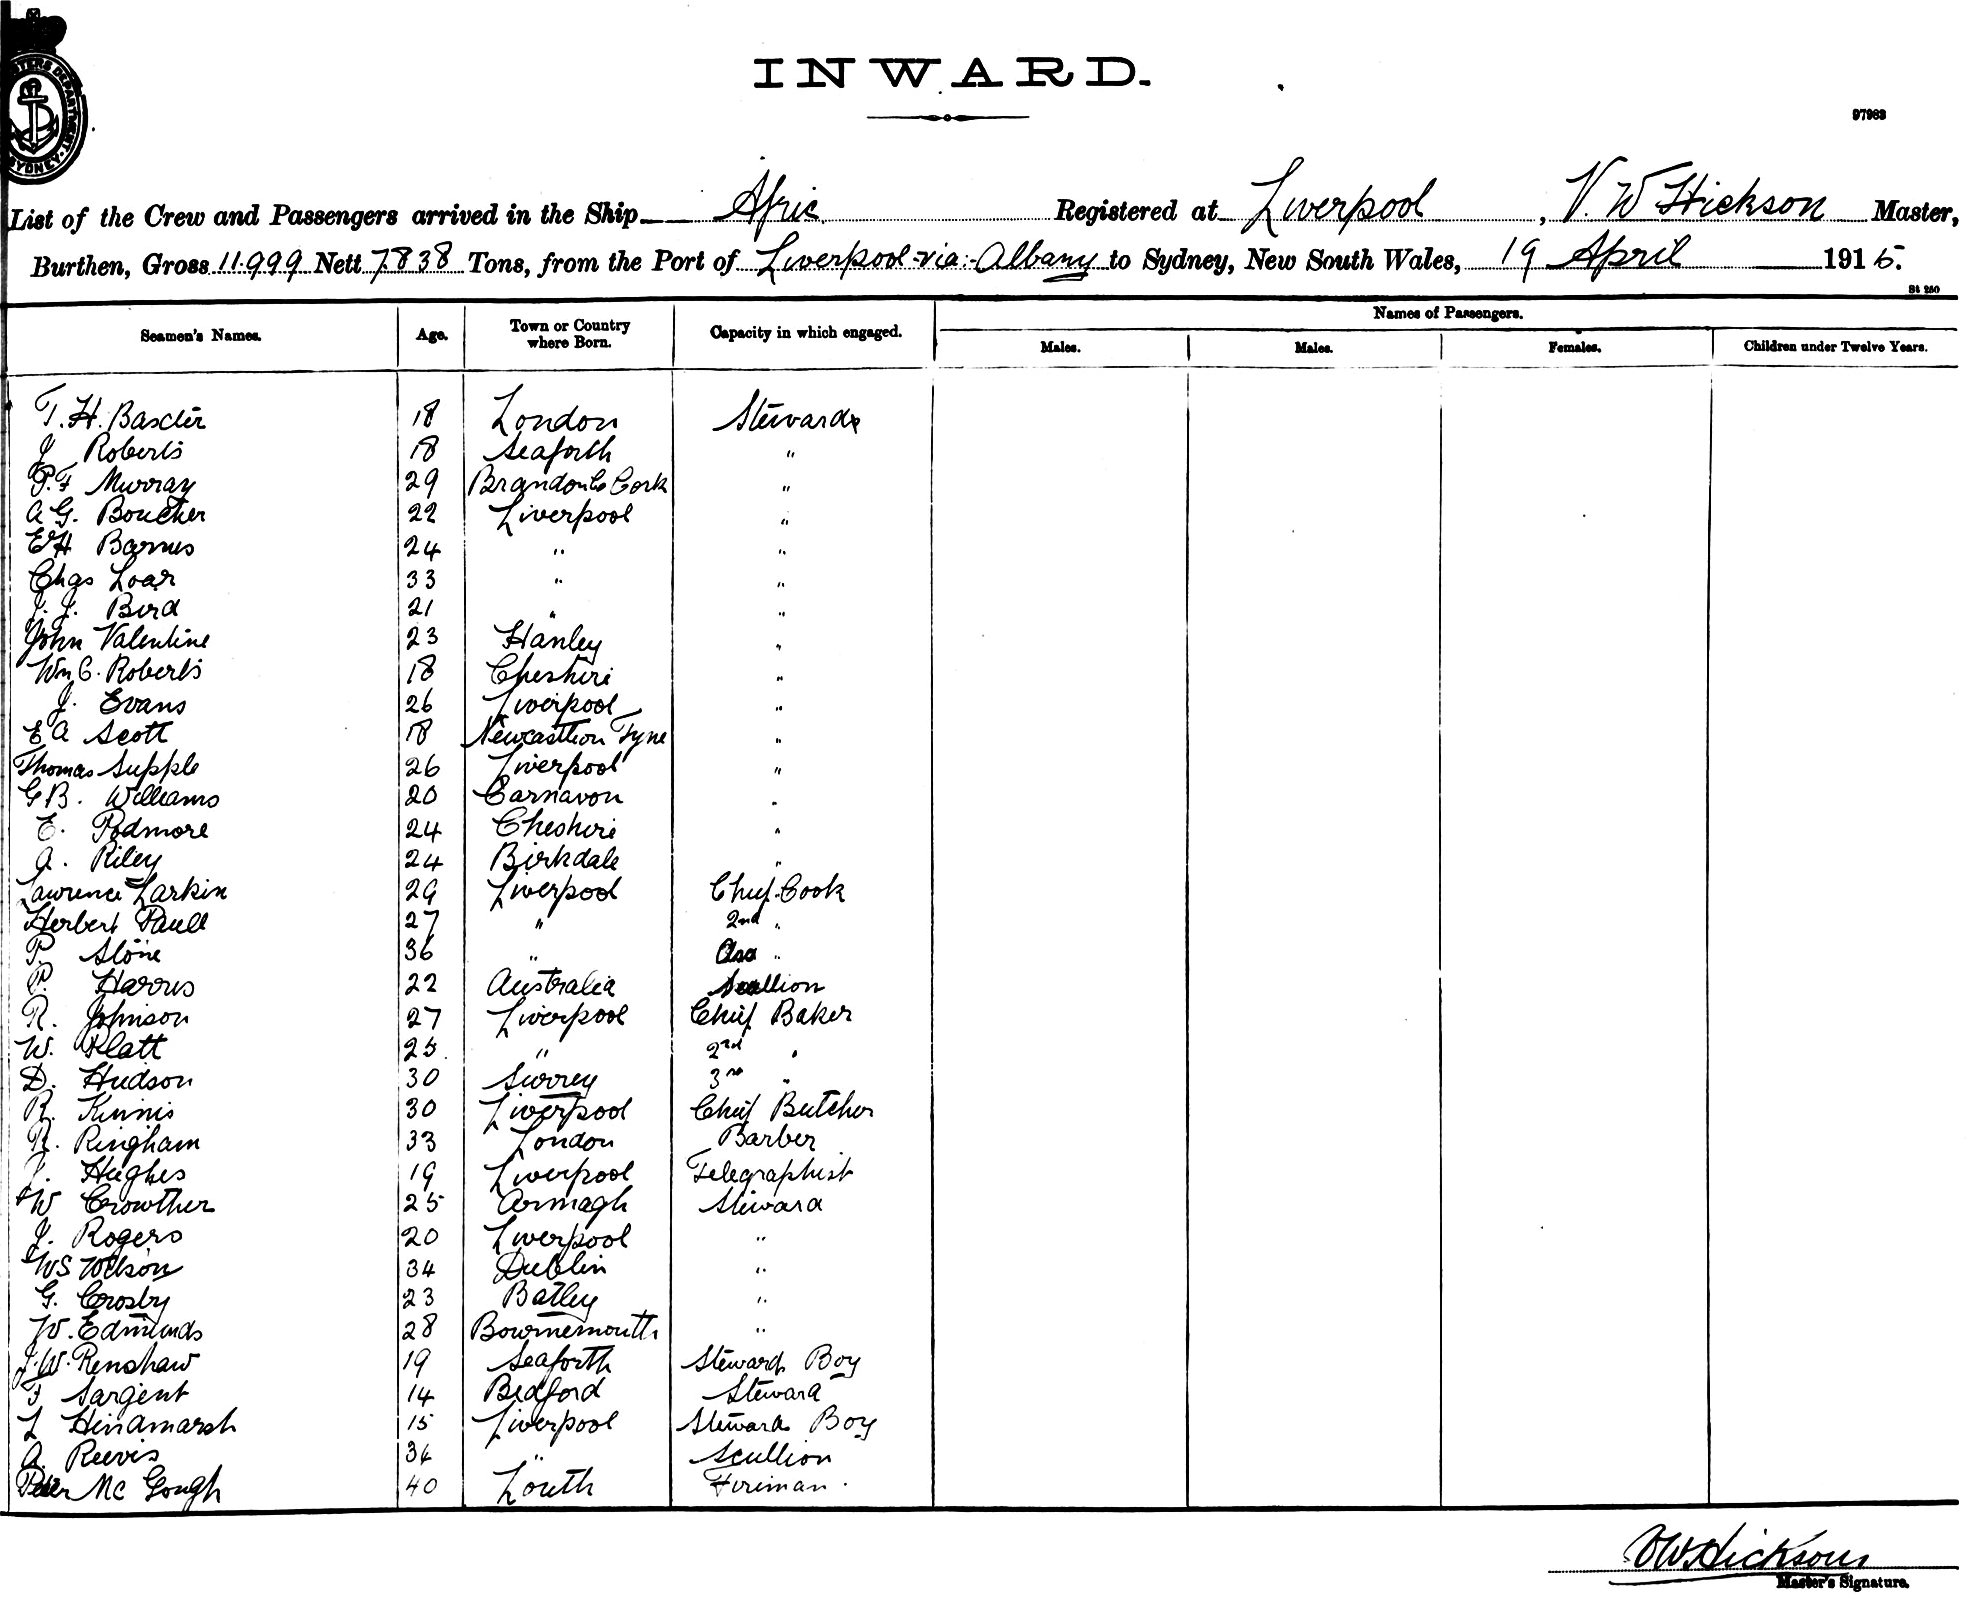 MASTERS DEPARTMENT. SYDNEY.
INWARD.
97983
List of the Crew and Passengers arrived in the Ship Afric Registered at Liverpool, V. W Hickson Master,
Burthen, Gross 11.999 Nett 7.838 Tons, from the Port of Liverpool-via-Albany to Sydney, New South Wales, 19 April 1915.
St 250
Seamen's Names. Age. Town or Country where Born. Capacity in which engaged. Names of Passengers.
Males. Males. Females. Children under Twelve Years.
T. H. Baxter 18 London Stewards
J Roberts 18 Seaforth "
P. F Murray 29 Brandon Co Cork "
A G. Boucher 22 Liverpool "
E H Barnes 24 " "
Chas Loar 33 " "
J. J. Bird 21 " "
John Valentine 23 Hanley "
Wm C. Roberts 18 Cheshire "
J. Evans 26 Liverpool "
E A Scott 18 Newcastle on Tyne "
Thomas Supple 26 Liverpool "
G B. Williams 20 Carnavon "
E. Podmore 24 Cheshire "
A. Riley 24 Birkdale "
Lawrence Larkin 29 Liverpool Chief Cook
Herbert Paull 27 " 2nd "
P. Stone 36 " Ass "
P. Harris 22 Australia Scullion
R. Johnson 27 Liverpool Chief Baker
W. Platt 25 " 2nd "
D. Hudson 30 Surrey 3rd "
R. Kinnis 30 Liverpool Chief Butcher
R. Ringham 33 London Barber
Hughes 19 Liverpool Telegraphist
W Crowther 25 Armagh Steward
J. Rogers 20 Liverpool "
W S Wilson 34 Dublin "
G. Crosby 23 Batley "
W. Edmunds 28 Bournemouth "
J. W. Renshaw 19 Seaforth Stewards Boy
F Sargent 14 Bedford Steward
L Hindmarsh 15 Liverpool Stewards Boy
A. Reevis 34 " Scullion
Peter Mc Gough 40 Louth Fireman.
V W Hickson
Master's Signature.